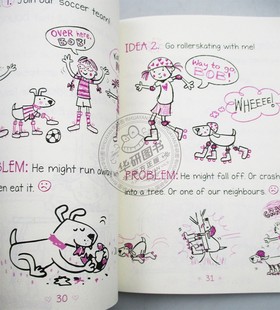 Join our soccer team!
OVER here,
BOB!
PROBLEM: He might run away
then eat it.
30
IDEA 2: Go rollerskating with me!
Way to go
BOB!
WHEEEE!
PROBLEM: He might fall off. Or crash
into a tree. Or one of our neighbours.
31
华研图书